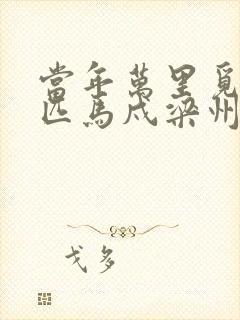 當年萬里覓
匹馬戍梁州
戈多